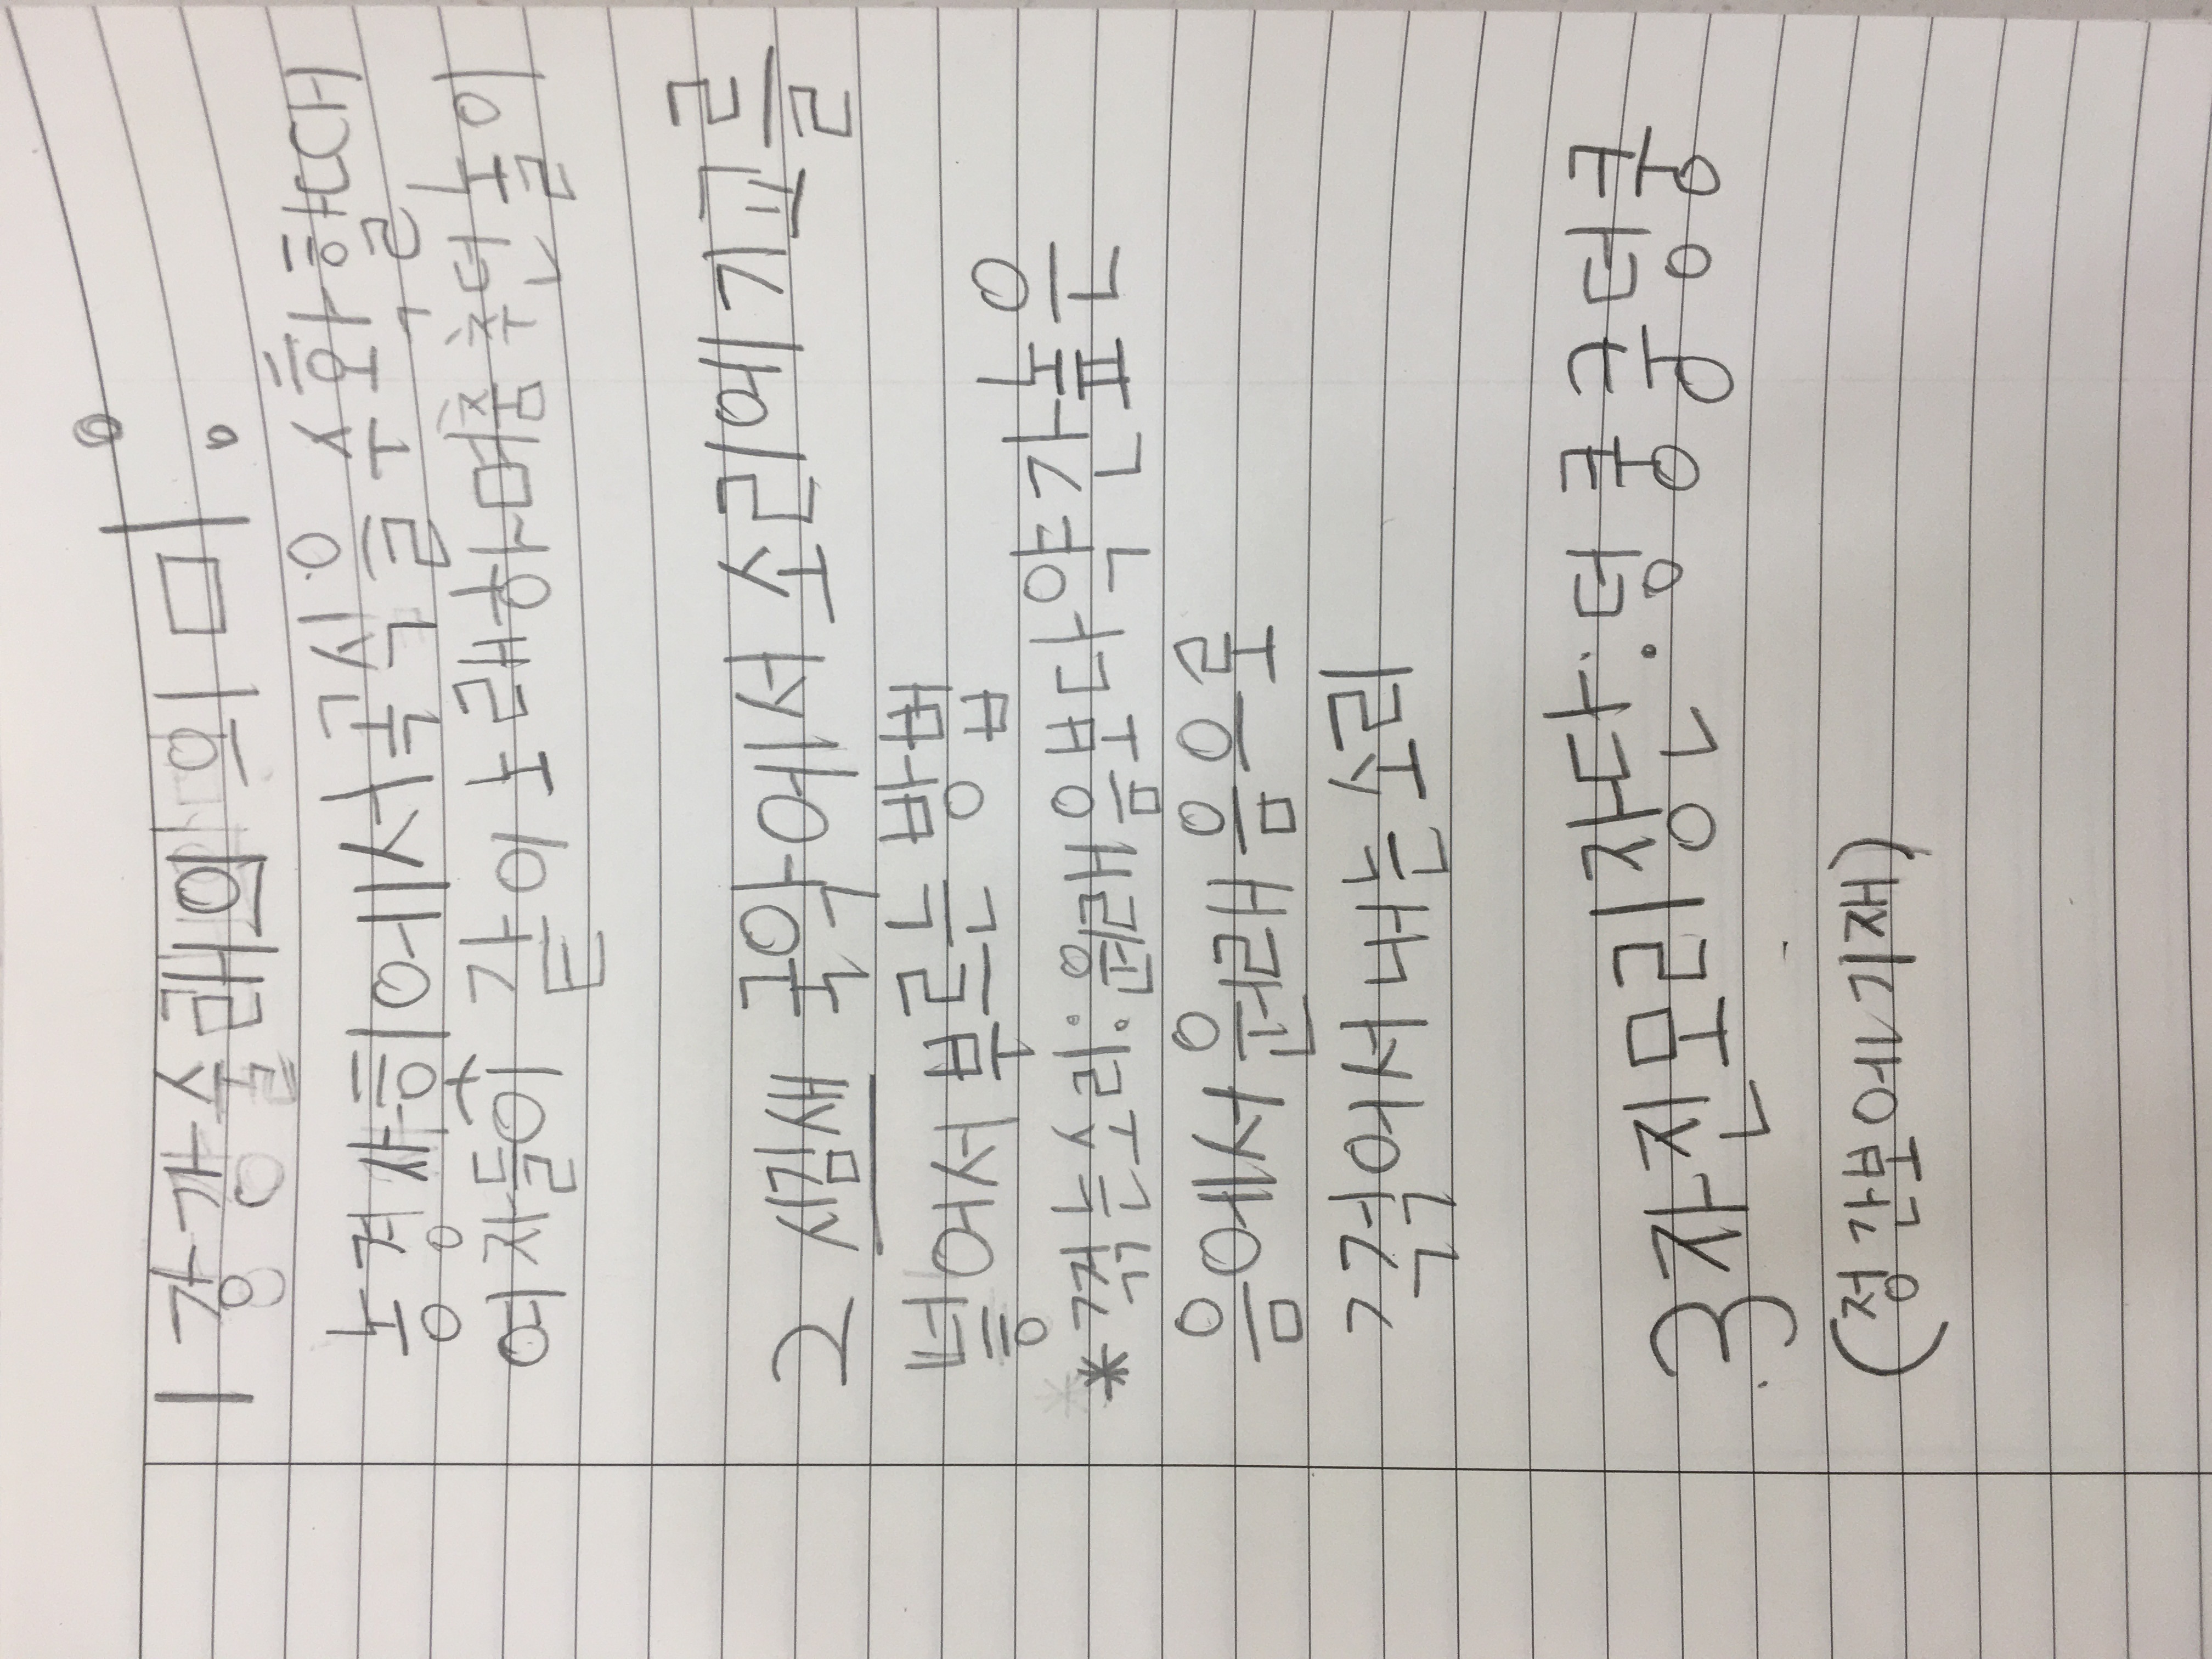 1 강강술래의 의미:
농경사회에서곡식을 수확할때
여자들이 같이 노래하며춤추던놀이
2 시김새 국악에서 소리에 기교를
넣어서 부르는 방법
* 꺾는소리: 원래음보다 약간높은
음에서 원래음으로
꺾어서 내는 소리
3 자진모리장단: 덩 쿵 쿵 덩 쿵
(정간보에 기재)